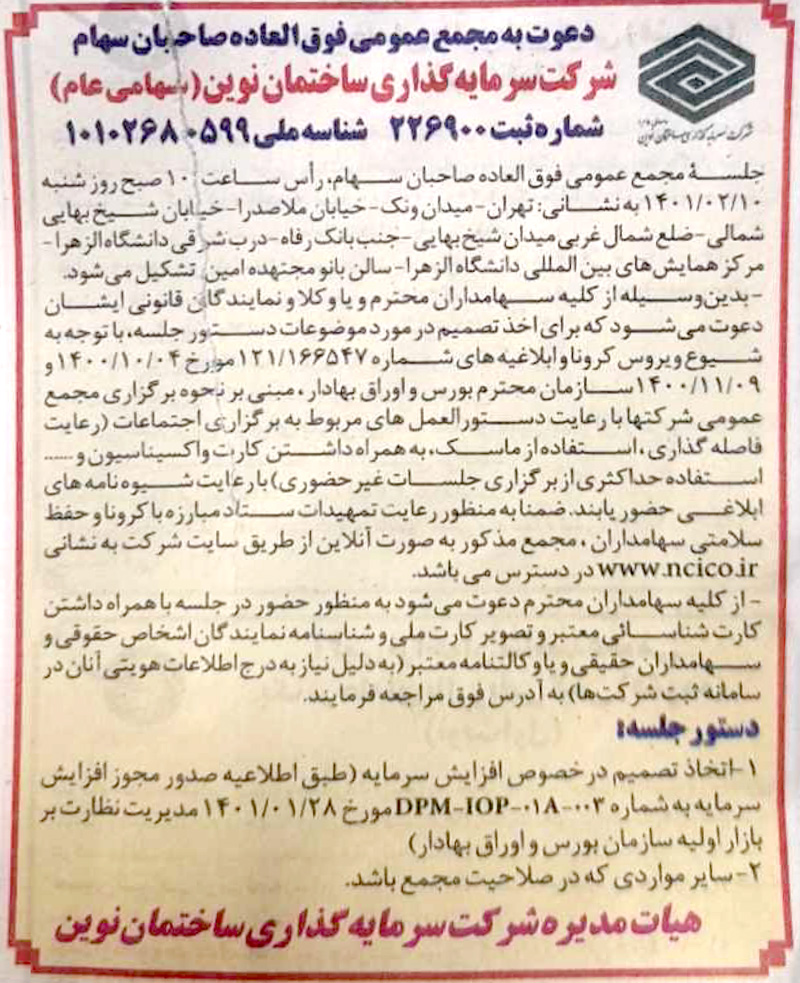 دعوت به مجمع عمومی فوق العاده صاحبان سهام
شرکت سرمایه گذاری ساختمان نوین (سهامی عام)
شماره ثبت ۲۲۶۹۰۰ شناسه ملی ۱۰۱۰۲۶۸۰۵۹۹
شرکت سرمایه گذاری ساختمان نوین
جلسهٔ مجمع عمومی فوق العاده صاحبان سهام، رأس ساعت ۱۰ صبح روز شنبه
۱۴۰۱/۰۲/۱۰ به نشانی: تهران-میدان ونک-خیابان ملاصدرا-خیابان شیخ بهایی
شمالی-ضلع شمال غربی میدان شیخ بهایی-جنب بانک رفاه-درب شرقی دانشگاه الزهرا-
مرکز همایش های بین المللی دانشگاه الزهرا-سالن بانو مجتهده امین تشکیل می شود.
-بدین وسیله از کلیه سهامداران محترم و یا وکلا و نمایندگان قانونی ایشان
دعوت می شود که برای اخذ تصمیم در مورد موضوعات دستور جلسه، با توجه به
شیوع ویروس کرونا و ابلاغیه های شماره ۱۲۱/۱۶۶۵۴۷ مورخ ۱۴۰۰/۱۰/۰۴ و
۱۴۰۰/۱۱/۰۹ سازمان محترم بورس و اوراق بهادار، مبنی بر نحوه برگزاری مجمع
عمومی شرکتها با رعایت دستورالعمل های مربوط به برگزاری اجتماعات (رعایت
فاصله گذاری، استفاده از ماسک، به همراه داشتن کارت واکسیناسیون و ......
استفاده حداکثری از برگزاری جلسات غیر حضوری) با رعایت شیوه نامه های
ابلاغی حضور یابند. ضمناً به منظور رعایت تمهیدات ستاد مبارزه با کرونا و حفظ
سلامتی سهامداران، مجمع مذکور به صورت آنلاین از طریق سایت شرکت به نشانی
www.ncico.ir در دسترس می باشد.
- از کلیه سهامداران محترم دعوت می شود به منظور حضور در جلسه با همراه داشتن
کارت شناسائی معتبر و تصویر کارت ملی و شناسنامه نمایندگان اشخاص حقوقی و
سهامداران حقیقی و یا وکالتنامه معتبر (به دلیل نیاز به درج اطلاعات هویتی آنان در
سامانه ثبت شرکت ها) به آدرس فوق مراجعه فرمایند.
دستور جلسه:
۱-اتخاذ تصمیم در خصوص افزایش سرمایه (طبق اطلاعیه صدور مجوز افزایش
سرمایه به شماره DPM-IOP-۰۱A-۰۰۳ مورخ ۱۴۰۱/۰۱/۲۸ مدیریت نظارت بر
بازار اولیه سازمان بورس و اوراق بهادار)
۲-سایر مواردی که در صلاحیت مجمع باشد.
هیات مدیره شرکت سرمایه گذاری ساختمان نوین